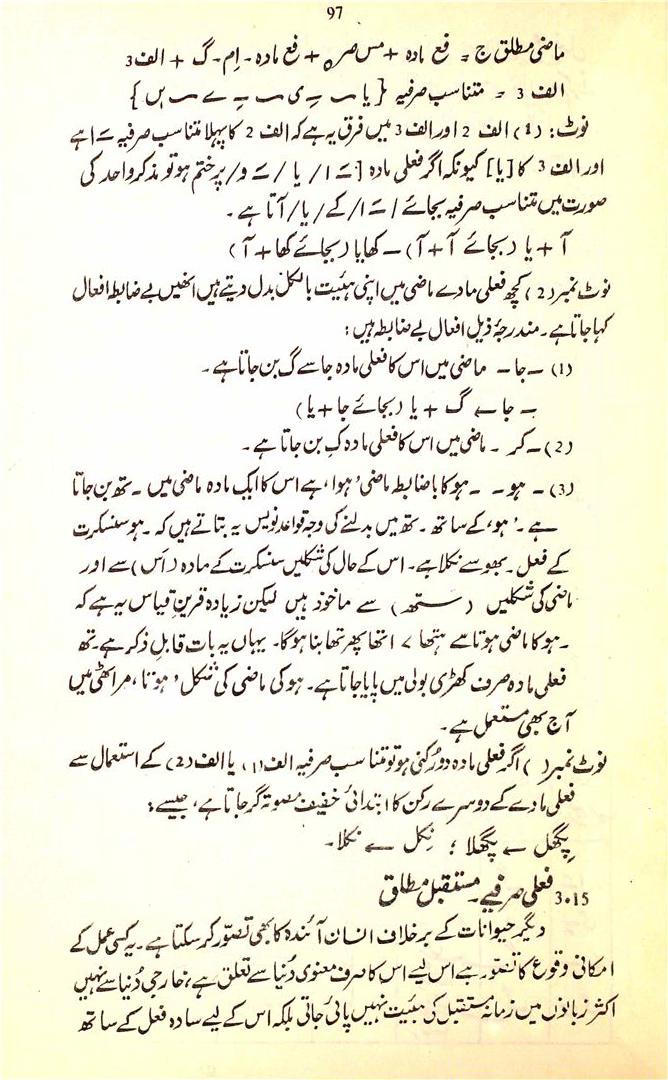 97
ماضی مطلق ج = فع مادہ + مس صرہ + فع مادہ - اِم - گ + الف 3
الف 3 = متناسب صرفیہ { یا ~ ی ~ ے ~ یں }
نوٹ: (1) الف 2 اور الف 3 میں فرق یہ ہے کہ الف 2 کا پہلا متناسب صرفیہ ـَ ا ہے
اور الف 3 کا [یا] کیونکہ اگر فعلی مادہ [ ـَ ا / یا / ـے و/ پر ختم ہو تو مذکر واحد کی
صورت میں متناسب صرفیہ بجائے / ـَ ا/ کے / یا/ آتا ہے۔
آ + یا (بجائے آ + آ) – کھایا (بجائے کھا + آ)
نوٹ نمبر (2) کچھ فعلی مادے ماضی میں اپنی ہیئت بالکل بدل دیتے ہیں انھیں بے ضابطہ افعال
کہا جاتا ہے۔ مندرجۂ ذیل افعال بے ضابطہ ہیں:
(1) – جا – ماضی میں اس کا فعلی مادہ جا سے گ بن جاتا ہے۔
– جا ← گ + یا (بجائے جا + یا)
(2) – کر – ماضی میں اس کا فعلی مادہ کِ بن جاتا ہے۔
(3) – ہو – – ہو کا باضابطہ ماضی 'ہوا' ہے اس کا ایک مادہ ماضی میں – تھ بن جاتا
ہے۔ 'ہو' کے ساتھ – تھ میں بدلنے کی وجہ قواعد نویس یہ بتاتے ہیں کہ – ہو سنسکرت
کے فعل – بھو سے نکلا ہے۔ اس کے حال کی شکلیں سنسکرت کے مادہ (اَس) سے اور
ماضی کی شکلیں (ستھ) سے ماخوذ ہیں لیکن زیادہ قرینِ قیاس یہ ہے کہ
– ہو کا ماضی ہوتا سے ہتھا > اتھا پھر تھا بنا ہوگا۔ یہاں یہ بات قابلِ ذکر ہے – تھ
فعلی مادہ صرف کھڑی بولی میں پایا جاتا ہے۔ ہو کی ماضی کی شکل 'ہوتا' مراٹھی میں
آج بھی مستعمل ہے۔
نوٹ نمبر ( ) اگر فعلی مادہ دو رُکنی ہو تو متناسب صرفیہ الف (1) یا الف (2) کے استعمال سے
فعلی مادے کے دوسرے رکن کا ابتدائی خفیف مصوتہ گر جاتا ہے، جیسے:
پگھل ← پگھلا ؛ نِکل ← نکلا۔
3.15 فعلی صرفیے – مستقبل مطلق
دیگر حیوانات کے برخلاف انسان آئندہ کا بھی تصوّر کر سکتا ہے۔ یہ کسی عمل کے
امکانی وقوع کا تصوّر ہے اس لیے اس کا صرف معنوی دُنیا سے تعلق ہے، خارجی دُنیا سے نہیں
اکثر زبانوں میں زمانہ مستقبل کی ہیئیت نہیں پائی جاتی بلکہ اس کے لیے سادہ فعل کے ساتھ